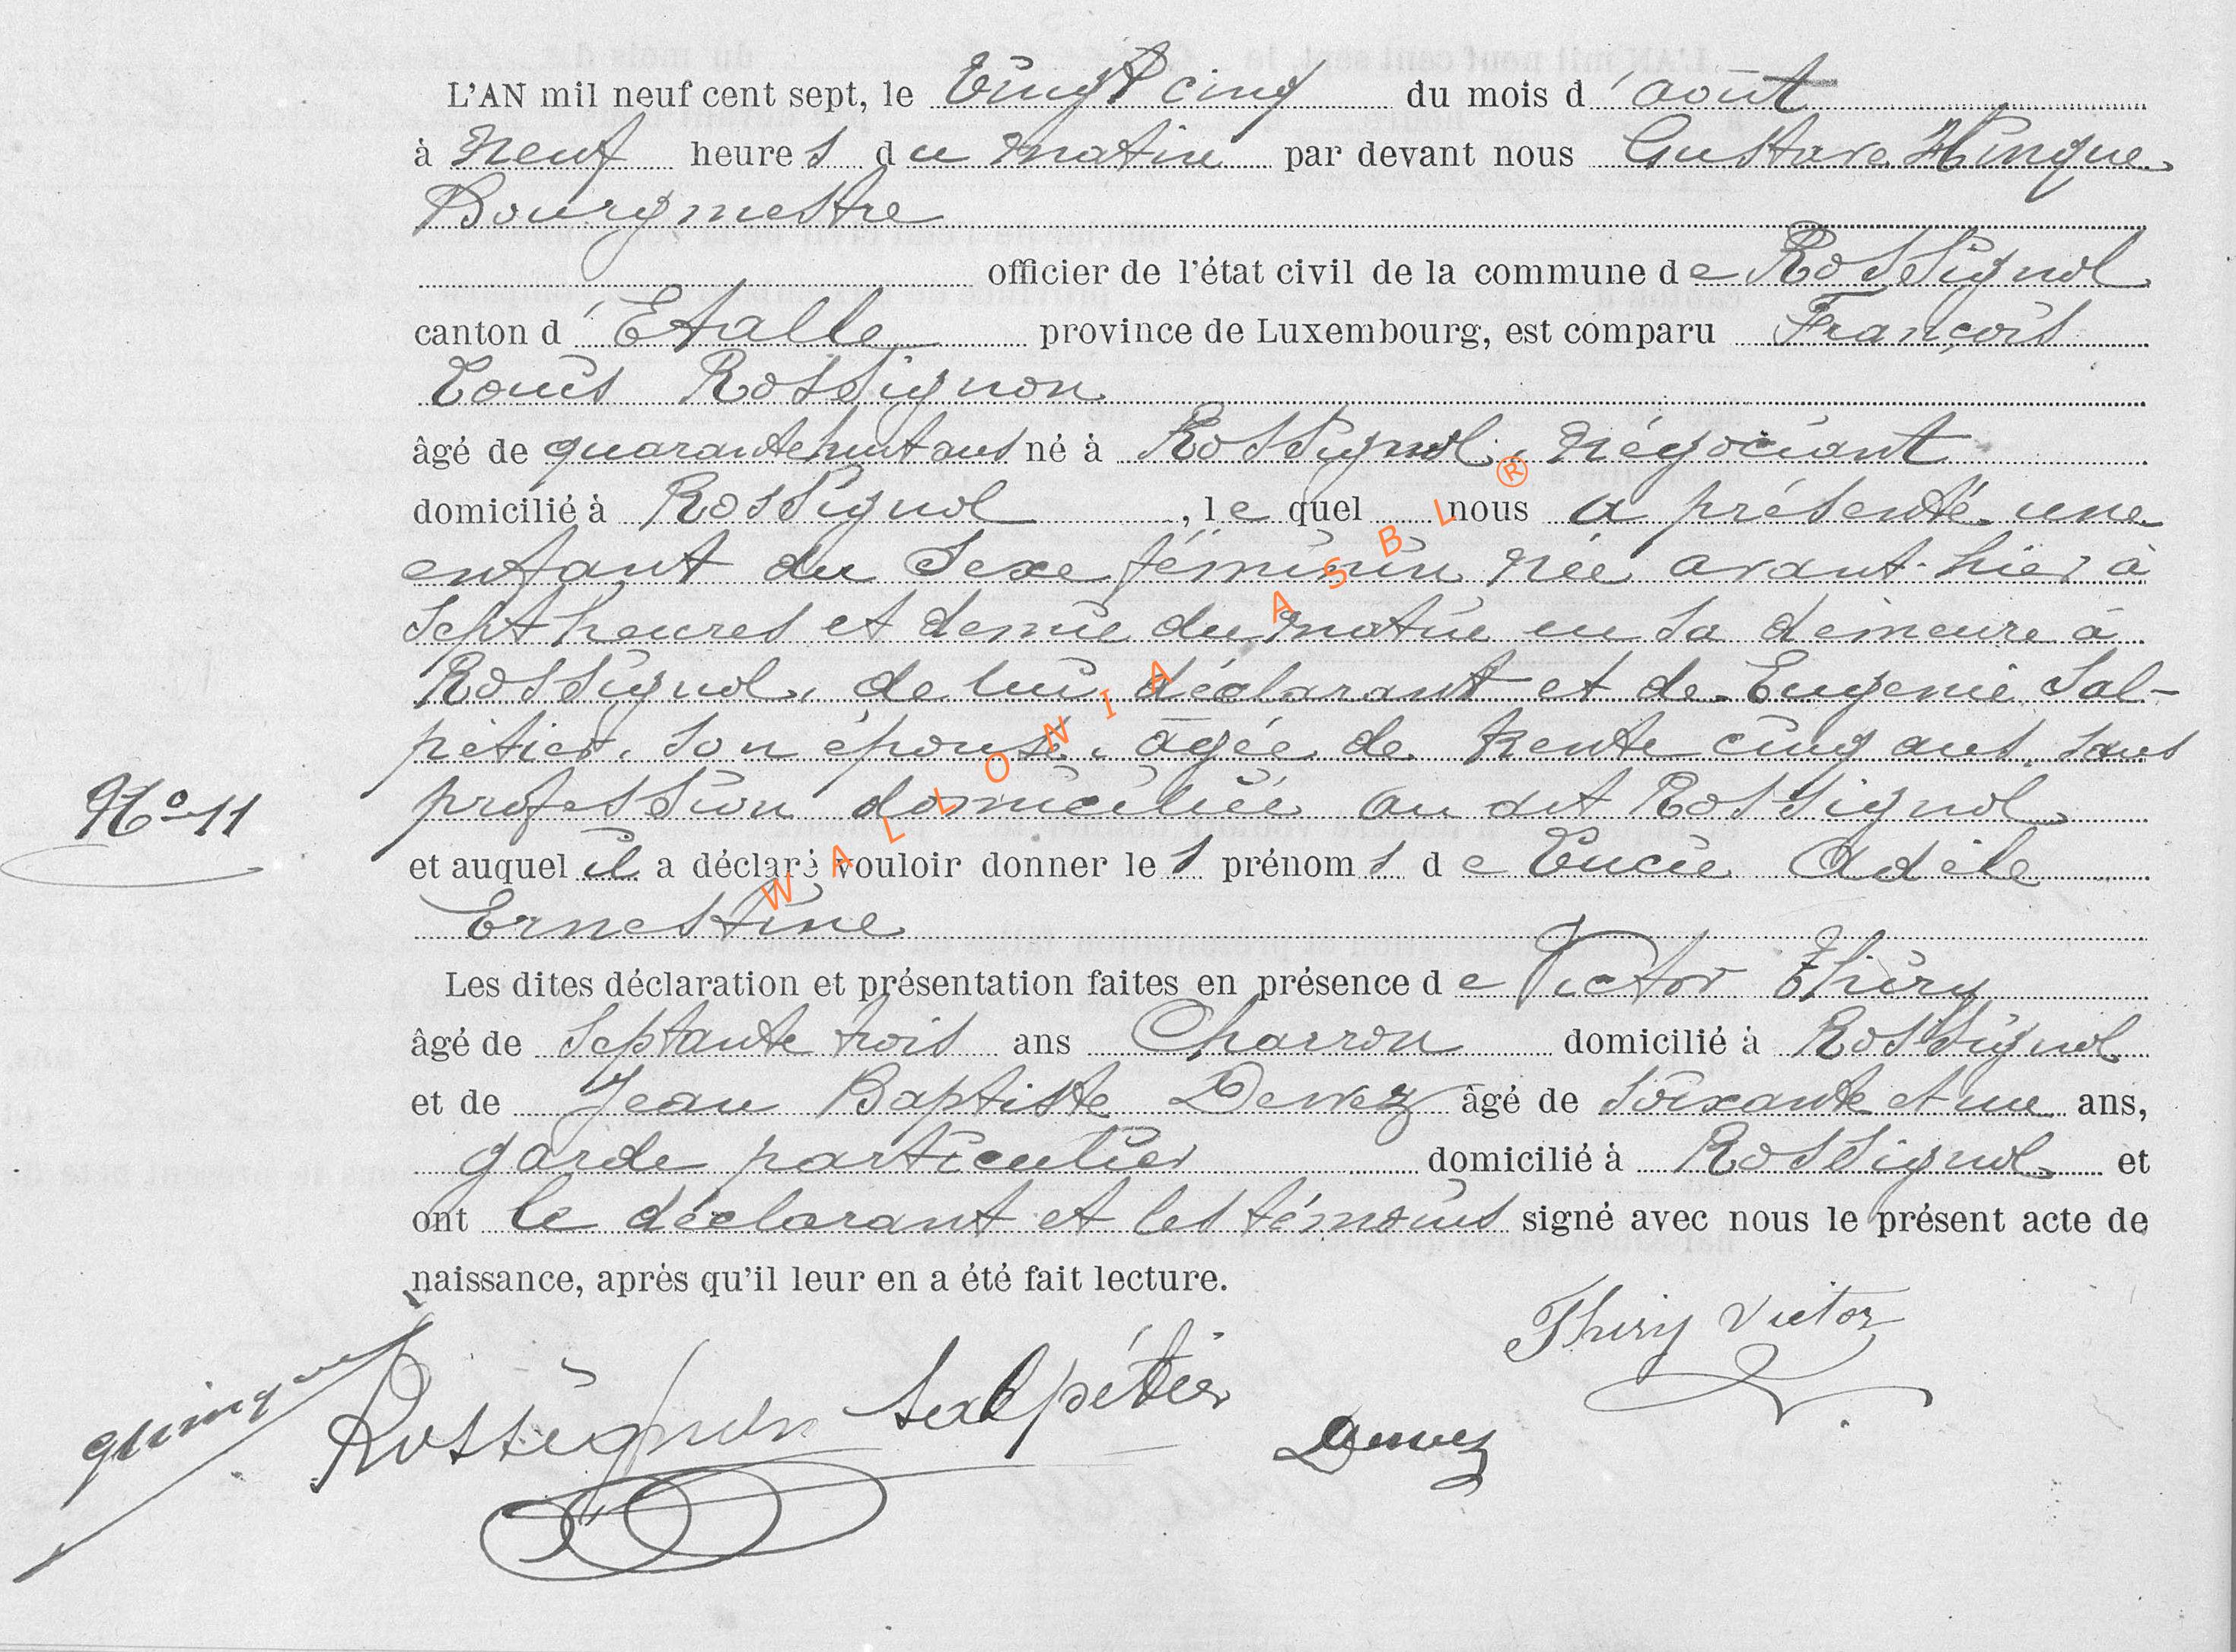 L'AN mil neuf cent sept, le Vingt cinq du mois d'août
à neuf heures du matin par devant nous Gustave Hinque
Bourgmestre
officier de l'état civil de la commune de Rossignol
canton d'Etalle province de Luxembourg, est comparu François
Louis Rossignon
âgé de quarante huit ans né à Rossignol, négociant
domicilié à Rossignol, le quel nous a présenté une
enfant du sexe féminin née avant-hier à
sept heures et demie du matin en sa demeure à
Rossignol, de lui déclarant et de Eugenie Sal-
pétier, son épouse, âgée de trente cinq ans, sans
profession domiciliée au dit Rossignol
N° 11
et auquel il a déclaré vouloir donner les prénoms de Lucie Adèle
Ernestine
Les dites déclaration et présentation faites en présence de Victor Thiry
âgé de septante trois ans Charron domicilié à Rossignol
et de Jean Baptiste Dewez âgé de soixante et un ans,
garde particulier domicilié à Rossignol et
ont le déclarant et les témoins signé avec nous le présent acte de
naissance, après qu'il leur en a été fait lecture.
Thiry Victor
Rossignon Salpétier
Dewez
WALLONIA ASBL ®